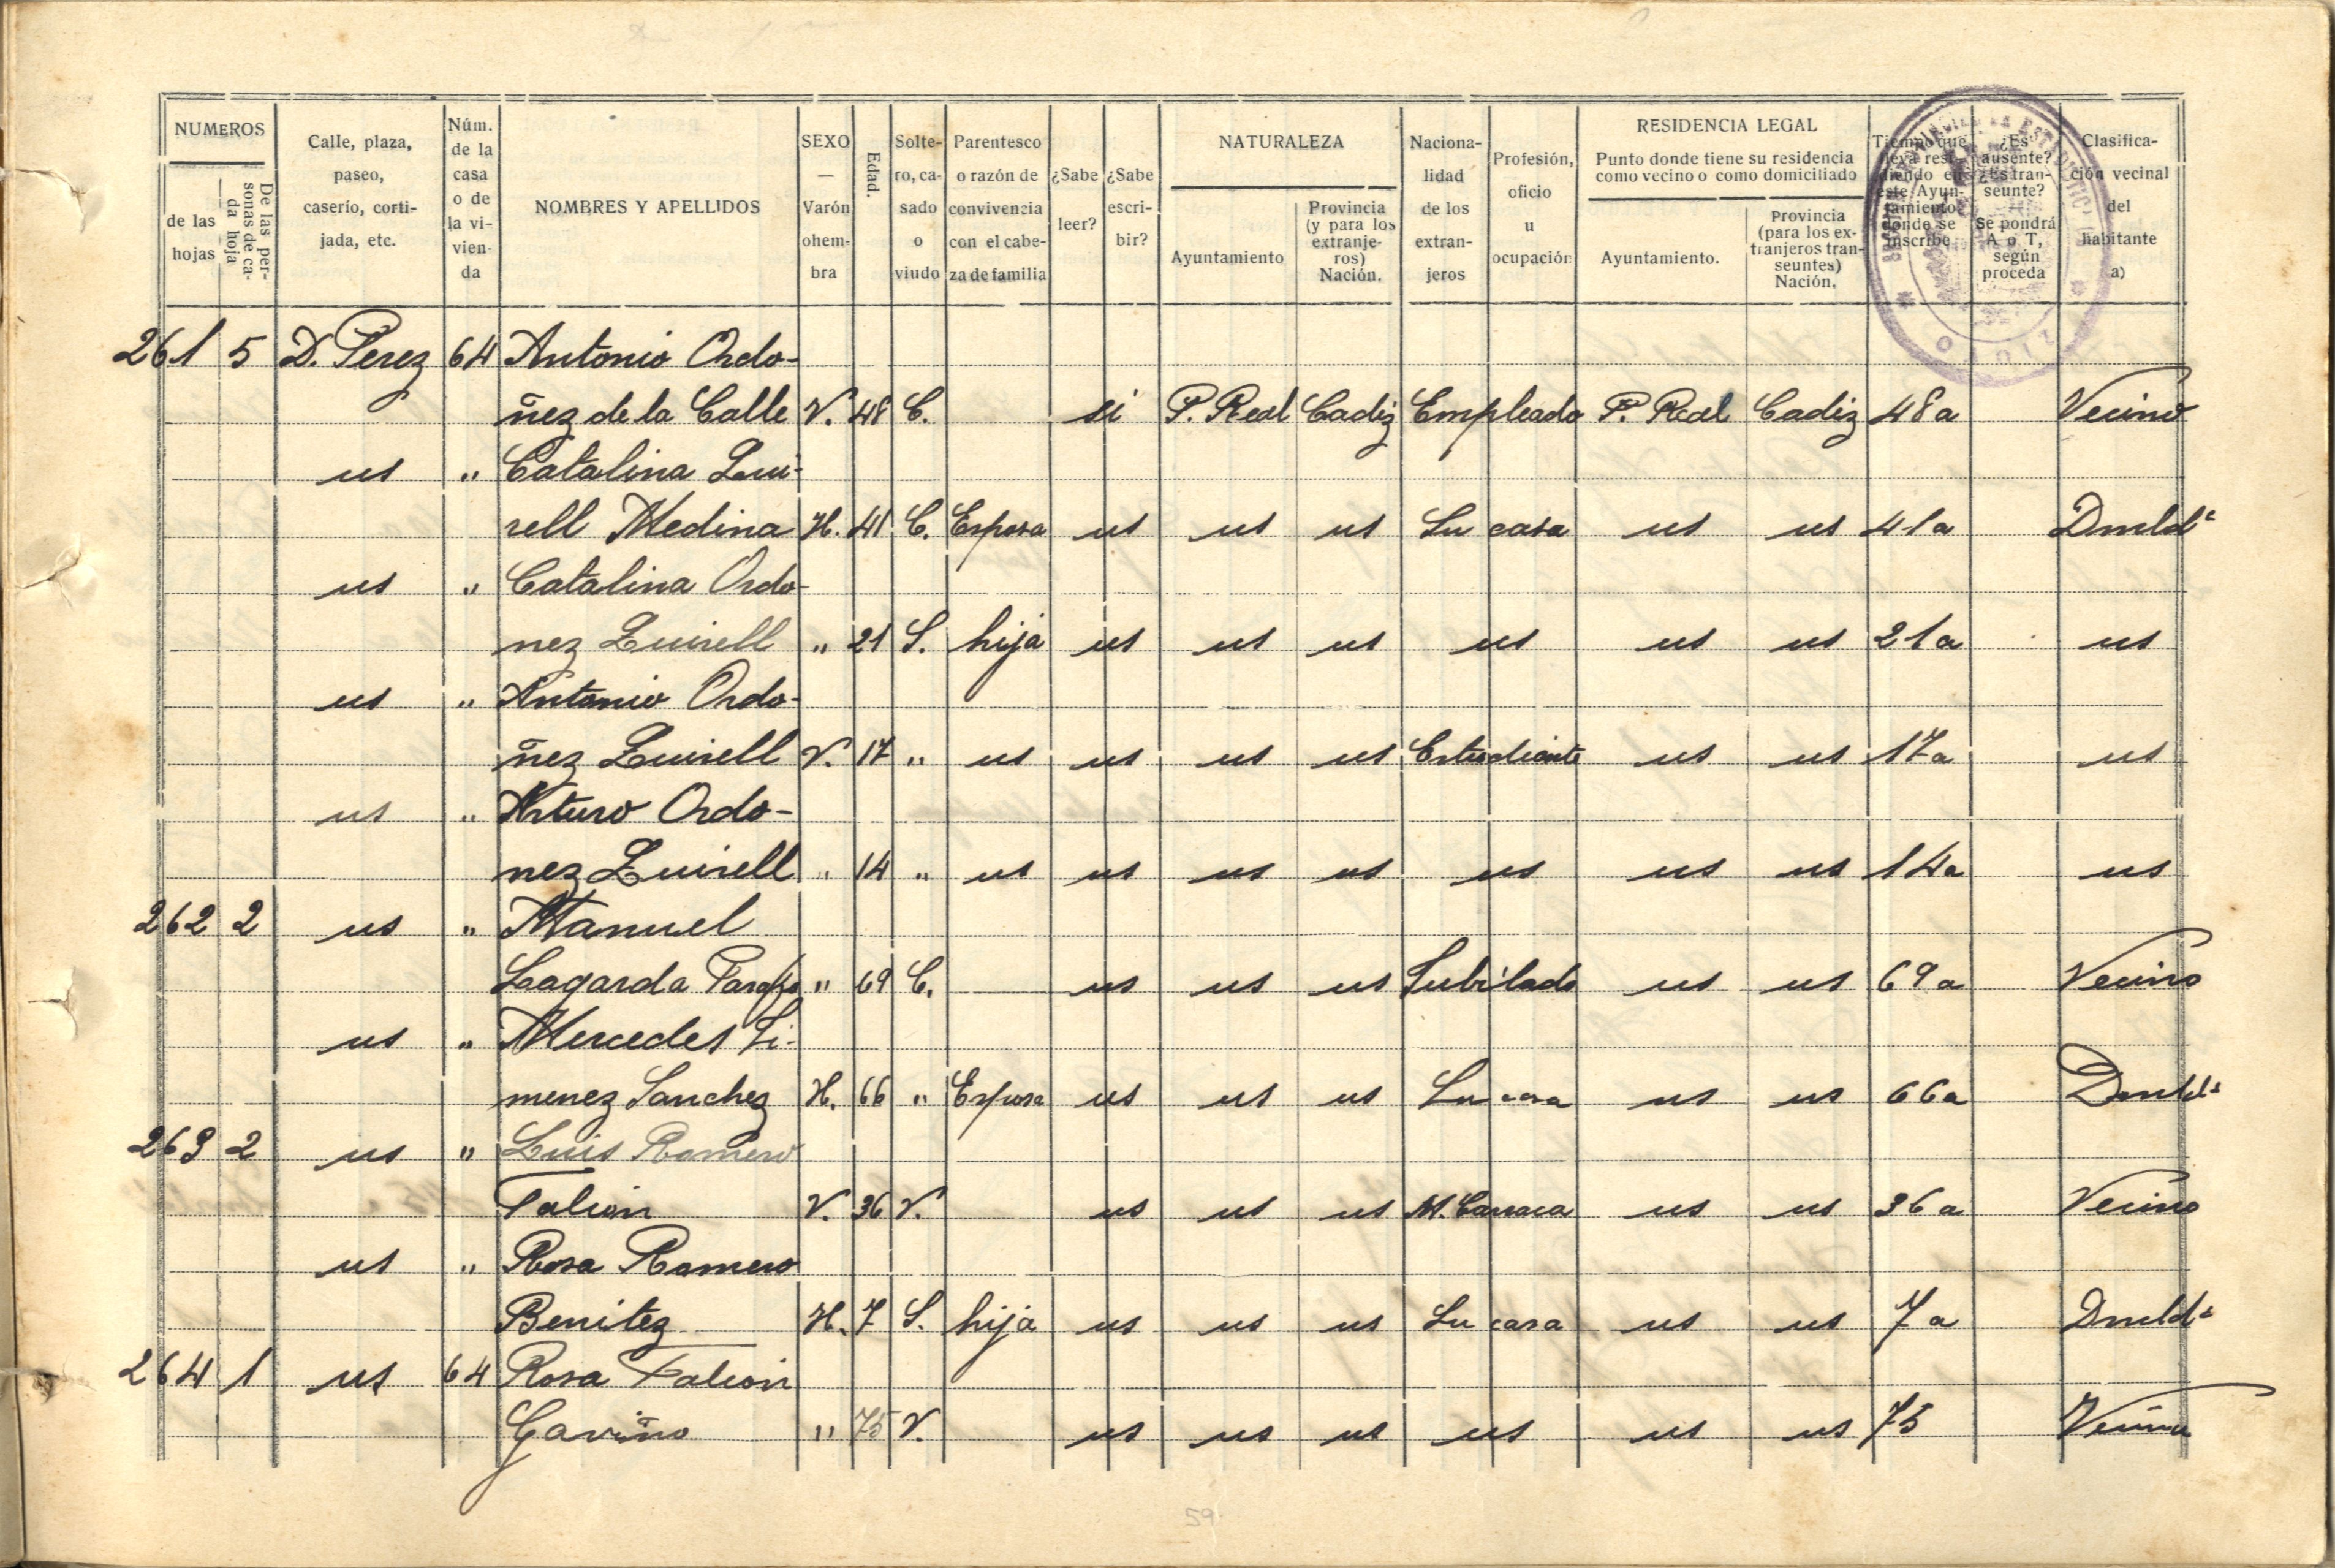 NUMEROS
de las hojas
De las personas de cada hoja
Calle, plaza, paseo, caserío, cortijada, etc.
Núm. de la casa o de la vivienda
NOMBRES Y APELLIDOS
SEXO — Varón ohembra
Edad.
Soltero, casado o viudo
Parentesco o razón de convivencia con el cabeza de familia
¿Sabe leer?
¿Sabe escribir?
NATURALEZA
Ayuntamiento
Provincia (y para los extranjeros) Nación.
Nacionalidad de los extranjeros
Profesión, oficio u ocupación
RESIDENCIA LEGAL
Punto donde tiene su residencia como vecino o como domiciliado
Ayuntamiento.
Provincia (para los extranjeros transeuntes) Nación.
Tiempo que lleva residiendo en este Ayuntamiento donde se inscribe
¿Es ausente? ¿Es transeunte? — Se pondrá A o T, según proceda
Clasificación vecinal del habitante a)
261 5 D. Perez 64 Antonio Ordo-
ñez de la Calle V. 48 C. si P. Real Cadiz Empleado P. Real Cadiz 48a Vecino
us " Catalina
rell Medina H. 41 C. Esposa us us us Su casa us us 41a Dmld
us " Catalina Ordo-
nez 21 S. hija us us us us us us 21a us
us " Antonio Ordo-
ñez V. 17 " us us us us Estudiante us us 17a us
us " Arturo Ordo-
nez " 14 " us us us us us us us 14a us
262 2 us " Manuel
Lagarda " 69 C. us us us Jubilado us us 69a Vecino
us " Mercedes Ji-
menez Sanchez H. 66 " Esposa us us us Su casa us us 66a Dmld
263 2 us " Luis Romero
Falion V. 36 V. us us us M. Carraca us us 36a Vecino
us " Rosa Romero
Benitez H. 7 S. hija us us us Su casa us us 7a Dmld
264 1 us 64 Rosa Falion
Gaviño " 75 V. us us us us us us 75 Vecina
59